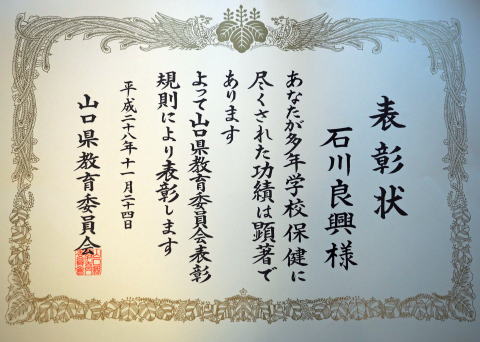 表彰状
石川良興様
あなたが多年学校保健に
尽くされた功績は顕著で
あります
よって山口県教育委員会表彰
規則により表彰します
平成二十八年十一月二十四日
山口県教育委員会